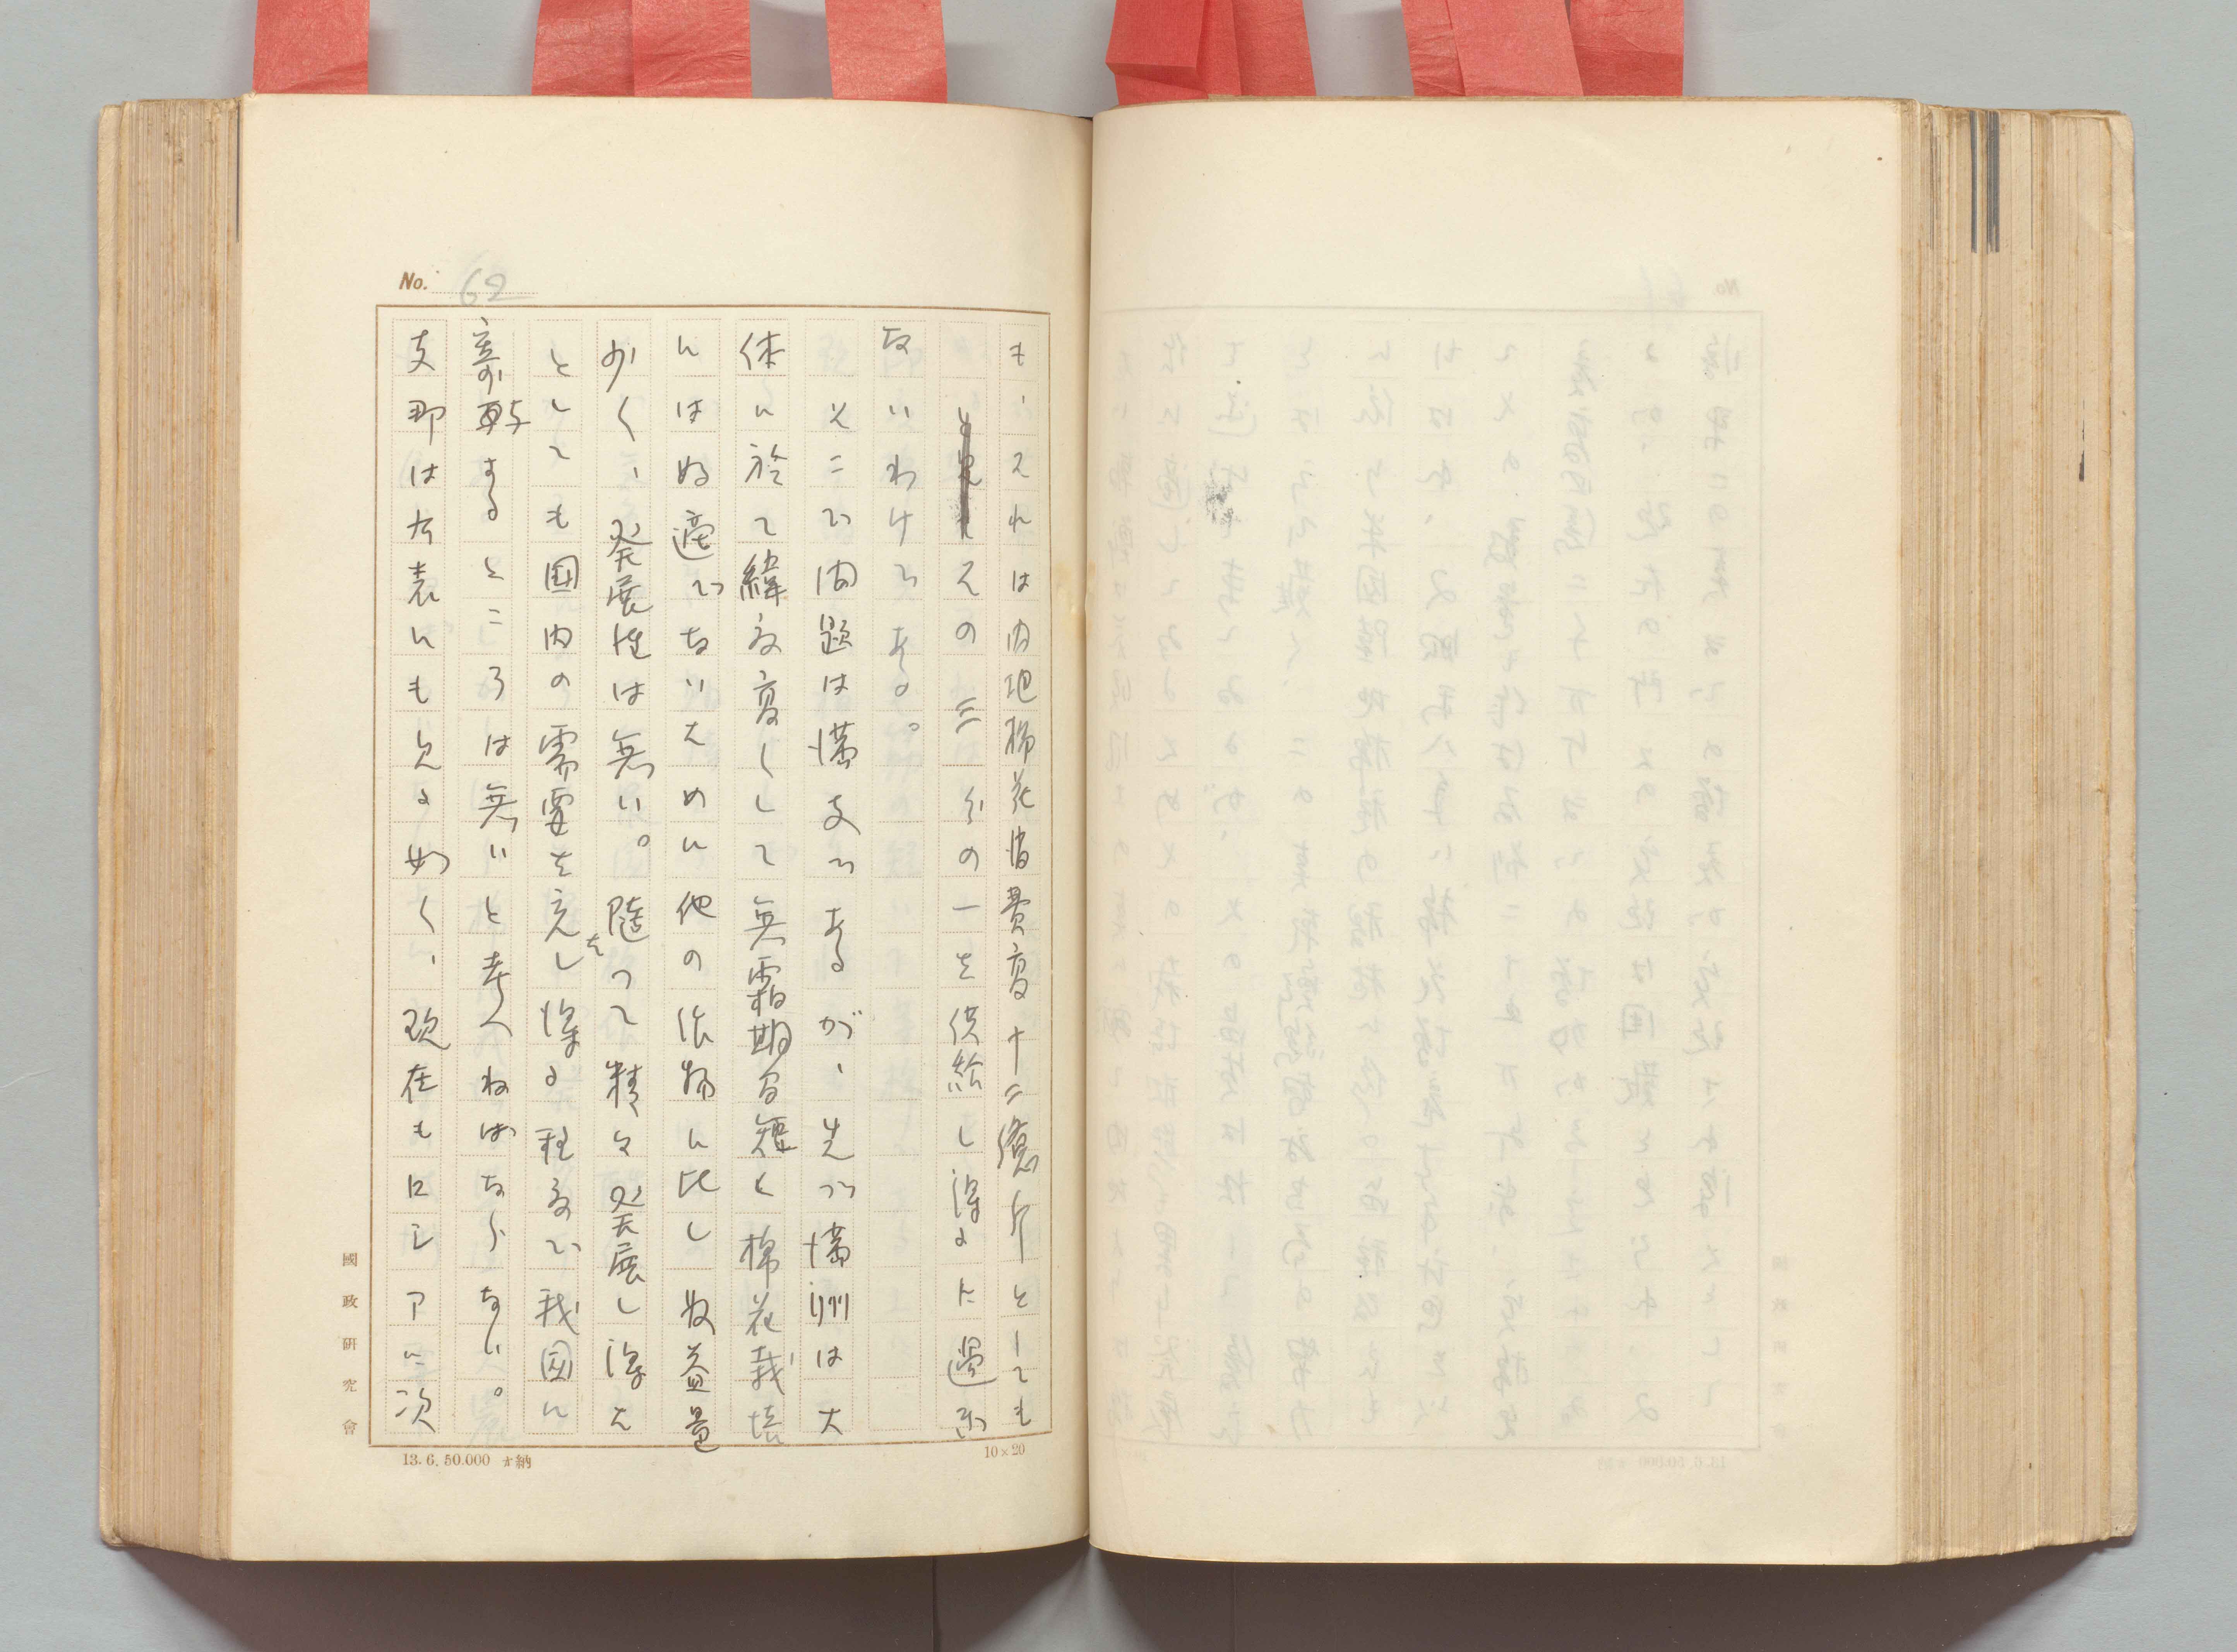 No. 62
も、それは内地棉花消費高十二億斤としても
その三分の一を供給し得るに過ぎ
ないわけである。
そこで問題は満支であるが、先づ満洲は大
体に於て緯度高くして無霜期間短く棉花栽培
にはぬ適でないために他の作物に比し収益量
少く、発展性は無い。随つて精々発展し得た
としても国内の需要を充し得る程度で我国に
寄与するところは無いと考へねばならない。
支那は右表にも見る如く、現在もロシアに次
國政研究會
13.6.50.000 納
10×20